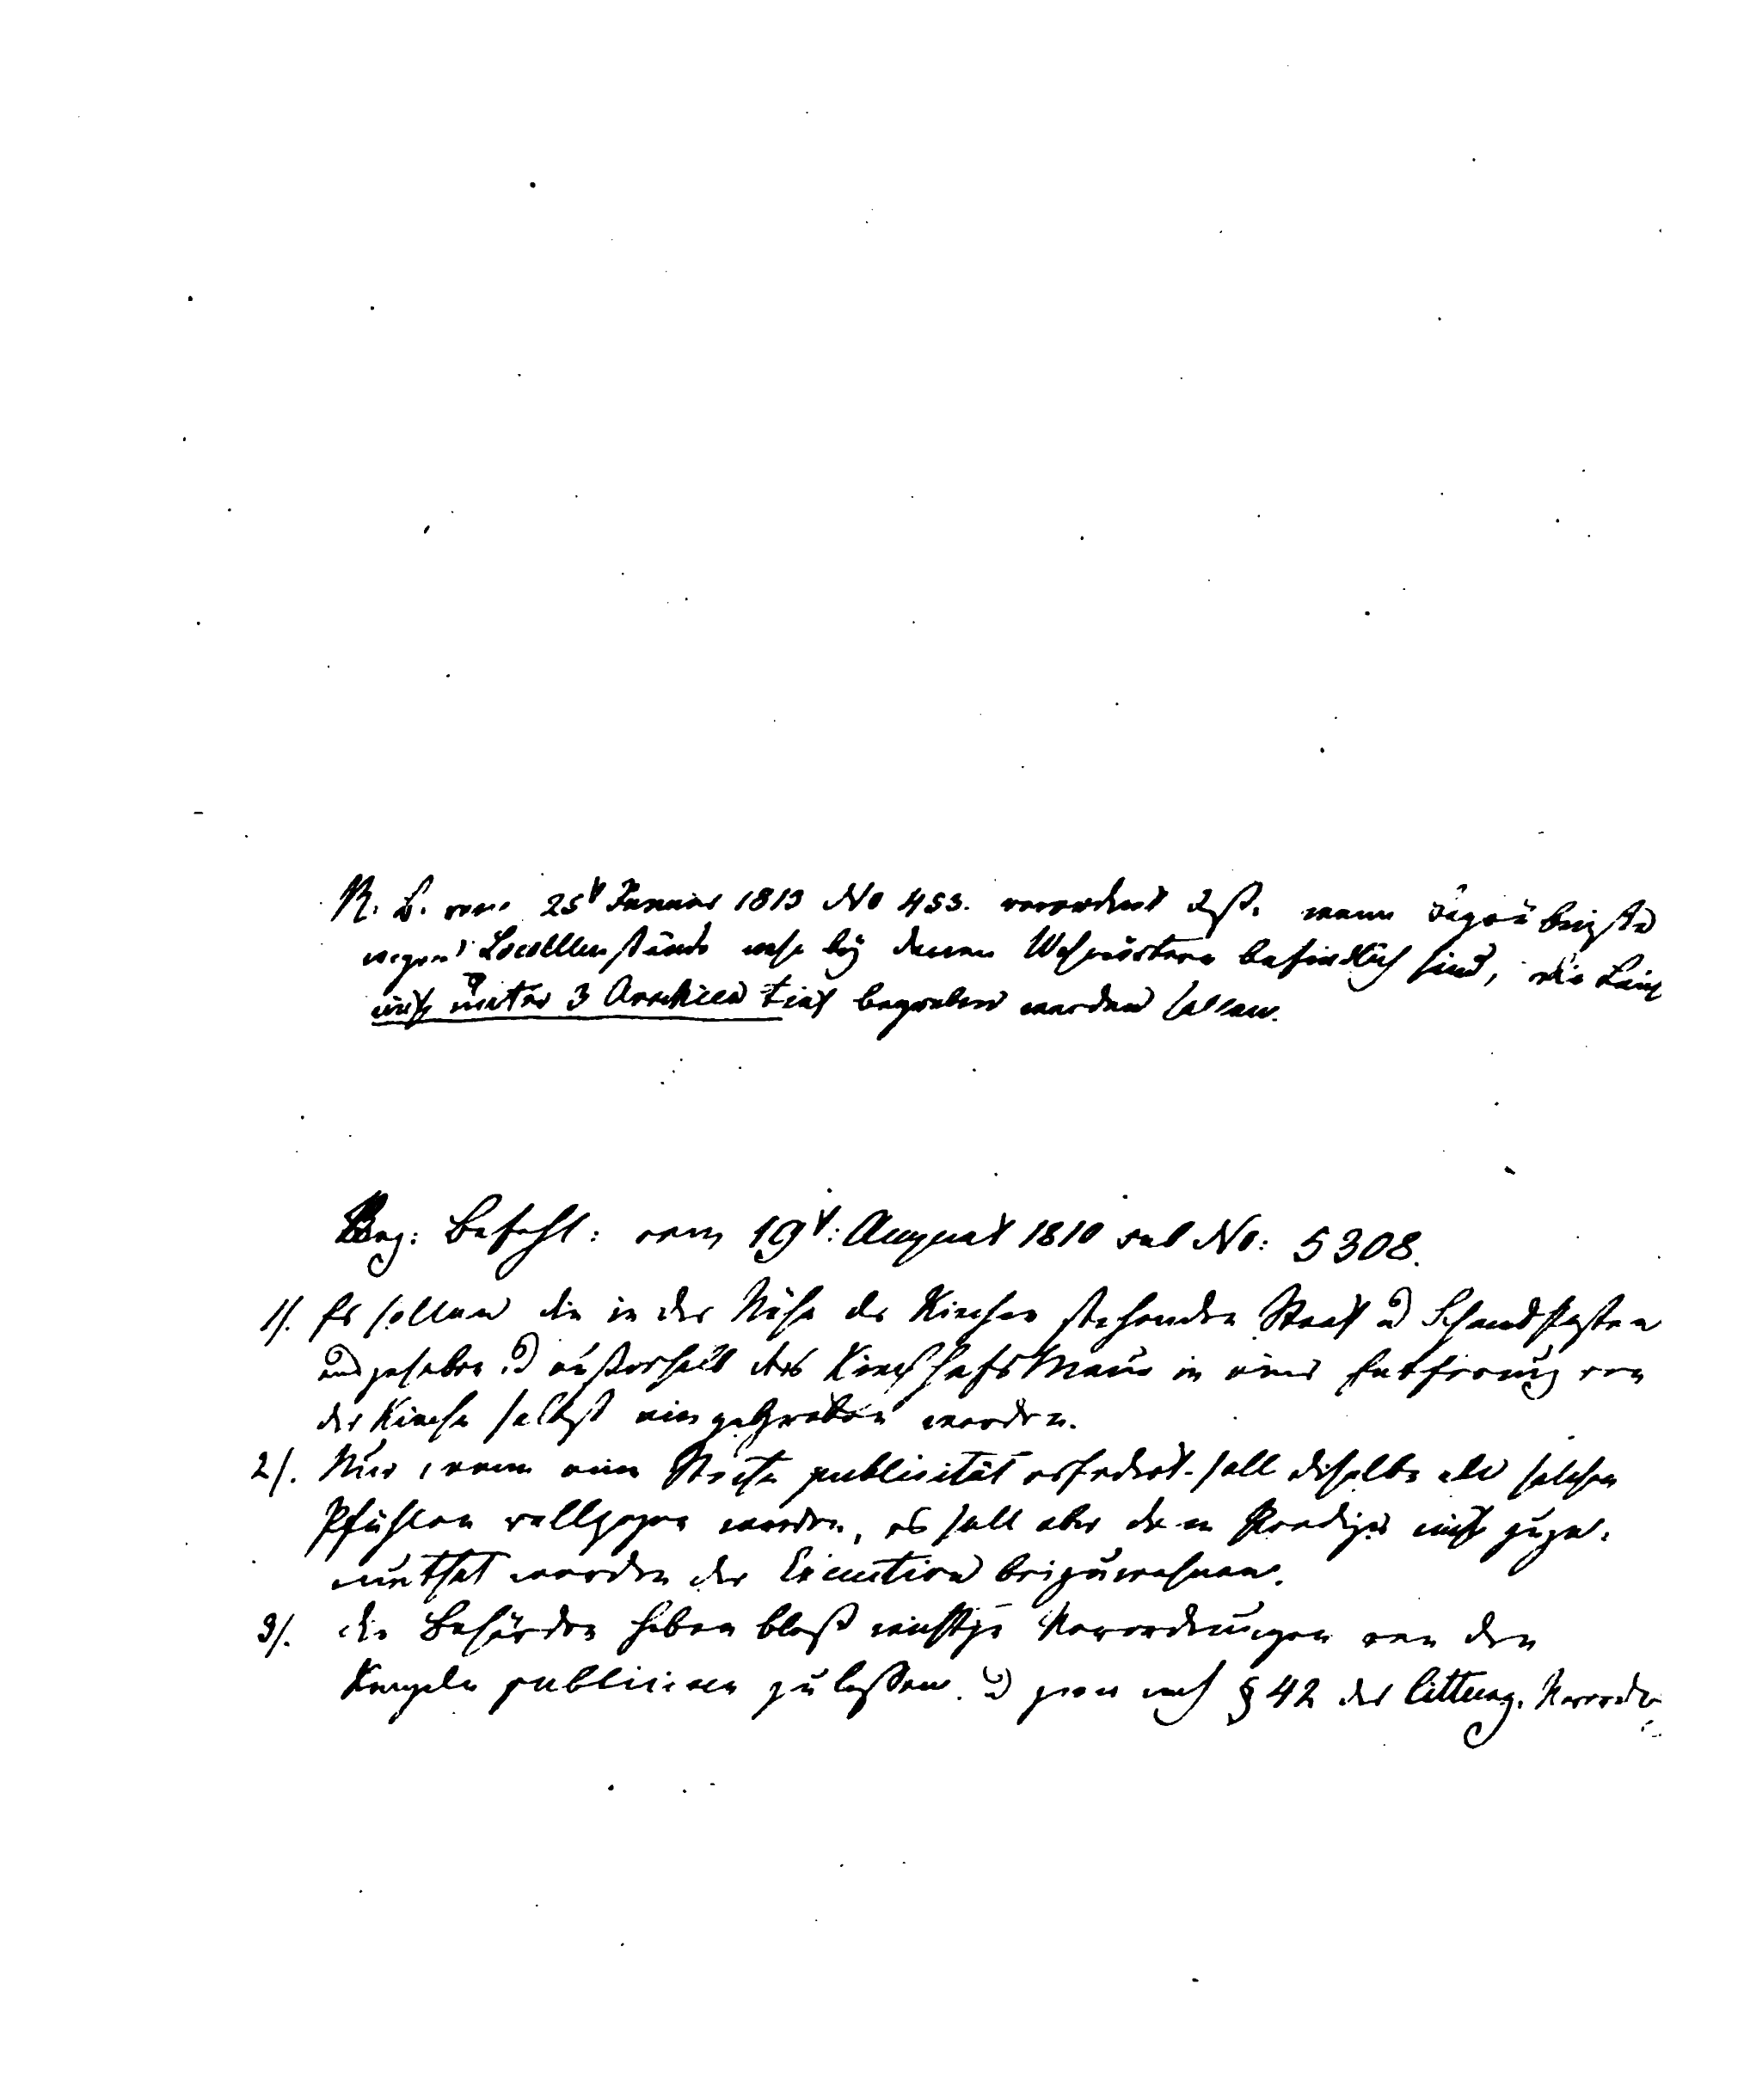 R. B. vom 25t Januar 1813 No 453. verordnet daß, wenn Begräbnißte
wegen Localumstände nahe bey denen Wohnörtern befindlich sind, die Leich
nicht unter 3 Arschien tief begraben werden sollen.
Reg: Befehl: vom 19t: August 1810 sub No: 5308.
1/. Es sollen die in der Nähe der Kirchen stehenden Straf u Schandpfosten
ausgehoben u außerhalb der Kirchhofs Mauer in einer Entfernung von
der Kirche selbst eingegraben werden.
2/. Nur wenn eine Strafe publicität erfodert soll dieselbe an solchen
Pfählen vollzogen werden, es soll aber dem Prediger nicht zuge-
muthet werden der Execution beizuwohnen.
3/. die Behörden haben bloß wichtige Verordnungen von den
Kanzeln publiciren zu lassen. u zwar nach § 42 der litturg. Verordn